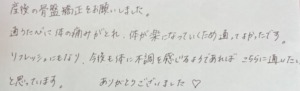 産後の骨盤矯正をお願いしました。
通うたびに体の痛みがとれ、体が楽になっていくため通ってよかったです。
リフレッシュにもなり、今後も体に不調を感じるようであれば こちらに通いたい
と思っています。 ありがとうございました♡